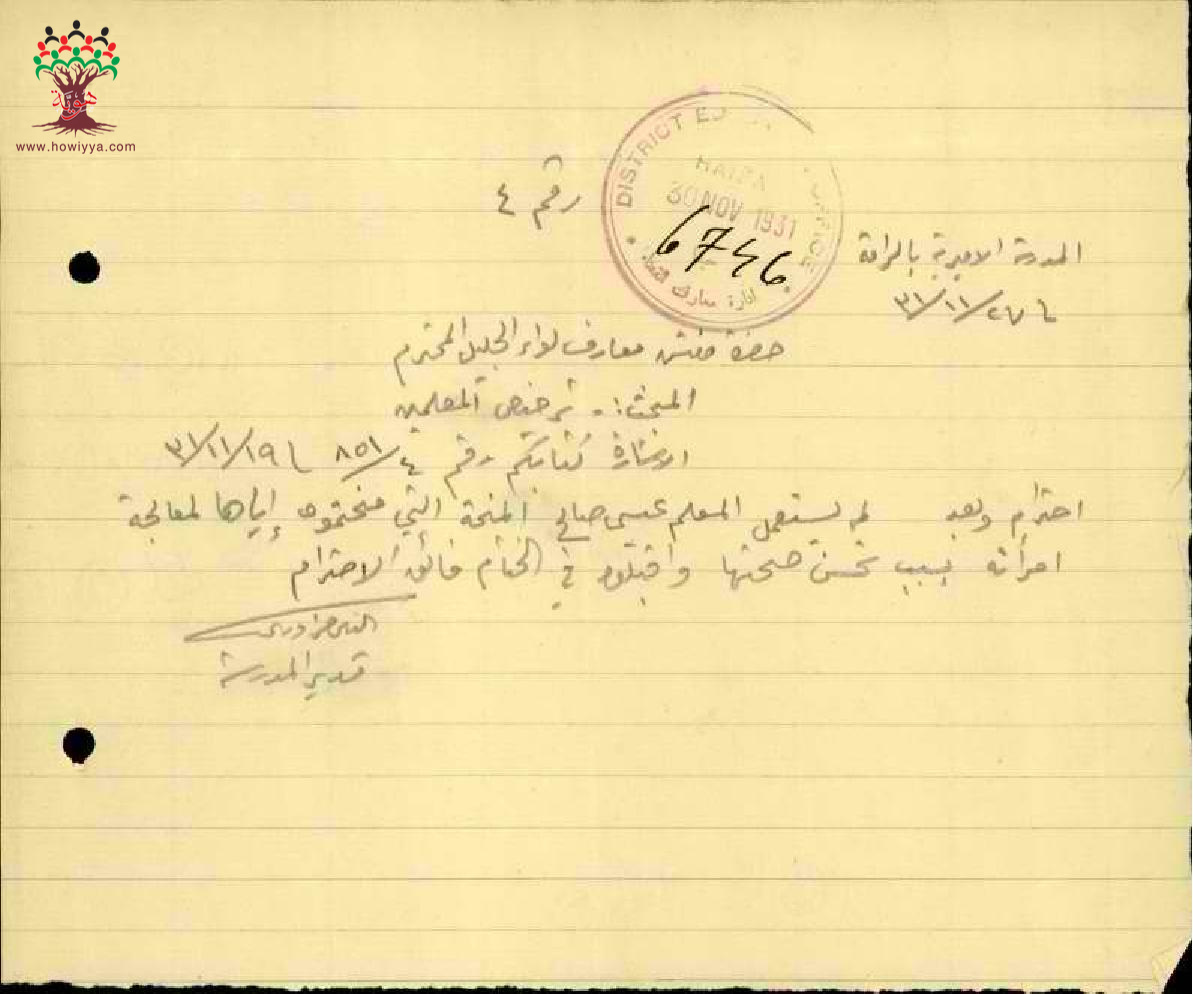 هوية
www.howiyya.com
DISTRICT ED OFFICE
HAIFA
30 NOV 1931
6746
ادارة معارف
رقم ٤
المدرسة الاميرية بالرامة
٣١/١١/٢٧
حضرة مفتش معارف لواء الجليل المحترم
المبحث :- ترخيص المعلمين
الاشارة كتابكم رقم ٨٥١/٤ ٣١/١١/١٩
احترام وبعد لم يستعمل المعلم عيسى صالح المنحة التي منحتموه إياها لمعالجة
امرأته بسبب تحسن صحتها واقبلوا في الختام فائق الاحترام
مدير المدرسة